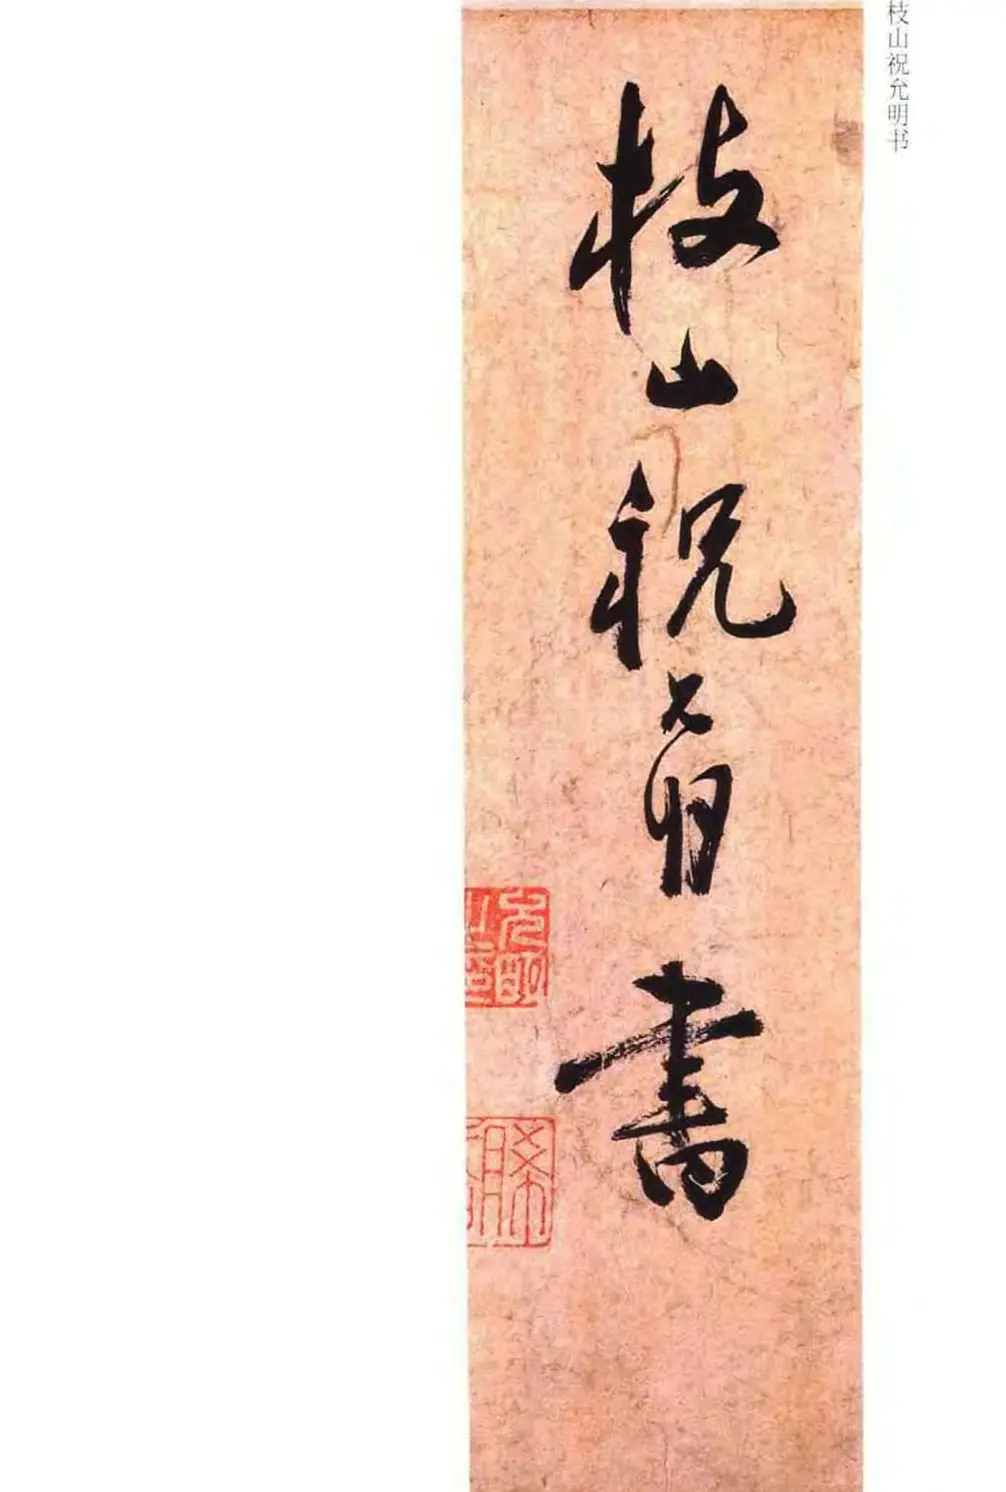 枝山祝允明书
枝山祝允明書
允明